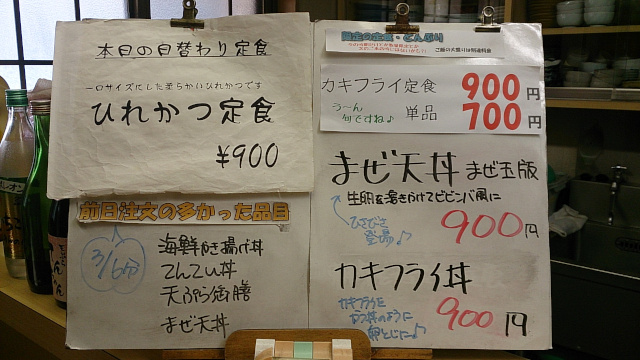 本日の日替わり定食
一口サイズにした柔らかいひれかつです
ひれかつ定食
¥900
前日注文の多かった品目
3/6分
海鮮かき揚げ丼
てんてい丼
天ぷら活膳
まぜ天丼
限定の定食・どんぶり
ご飯の大盛りは別途料金
カキフライ定食 900円
う〜ん
旬ですね♪
単品 700円
まぜ天丼 まぜ玉版
生卵を溶きかけてビビンバ風に
ひさびさ
登場♪
900円
カキフライ丼
カキフライを
かつ丼のように
卵とじに♪
900円